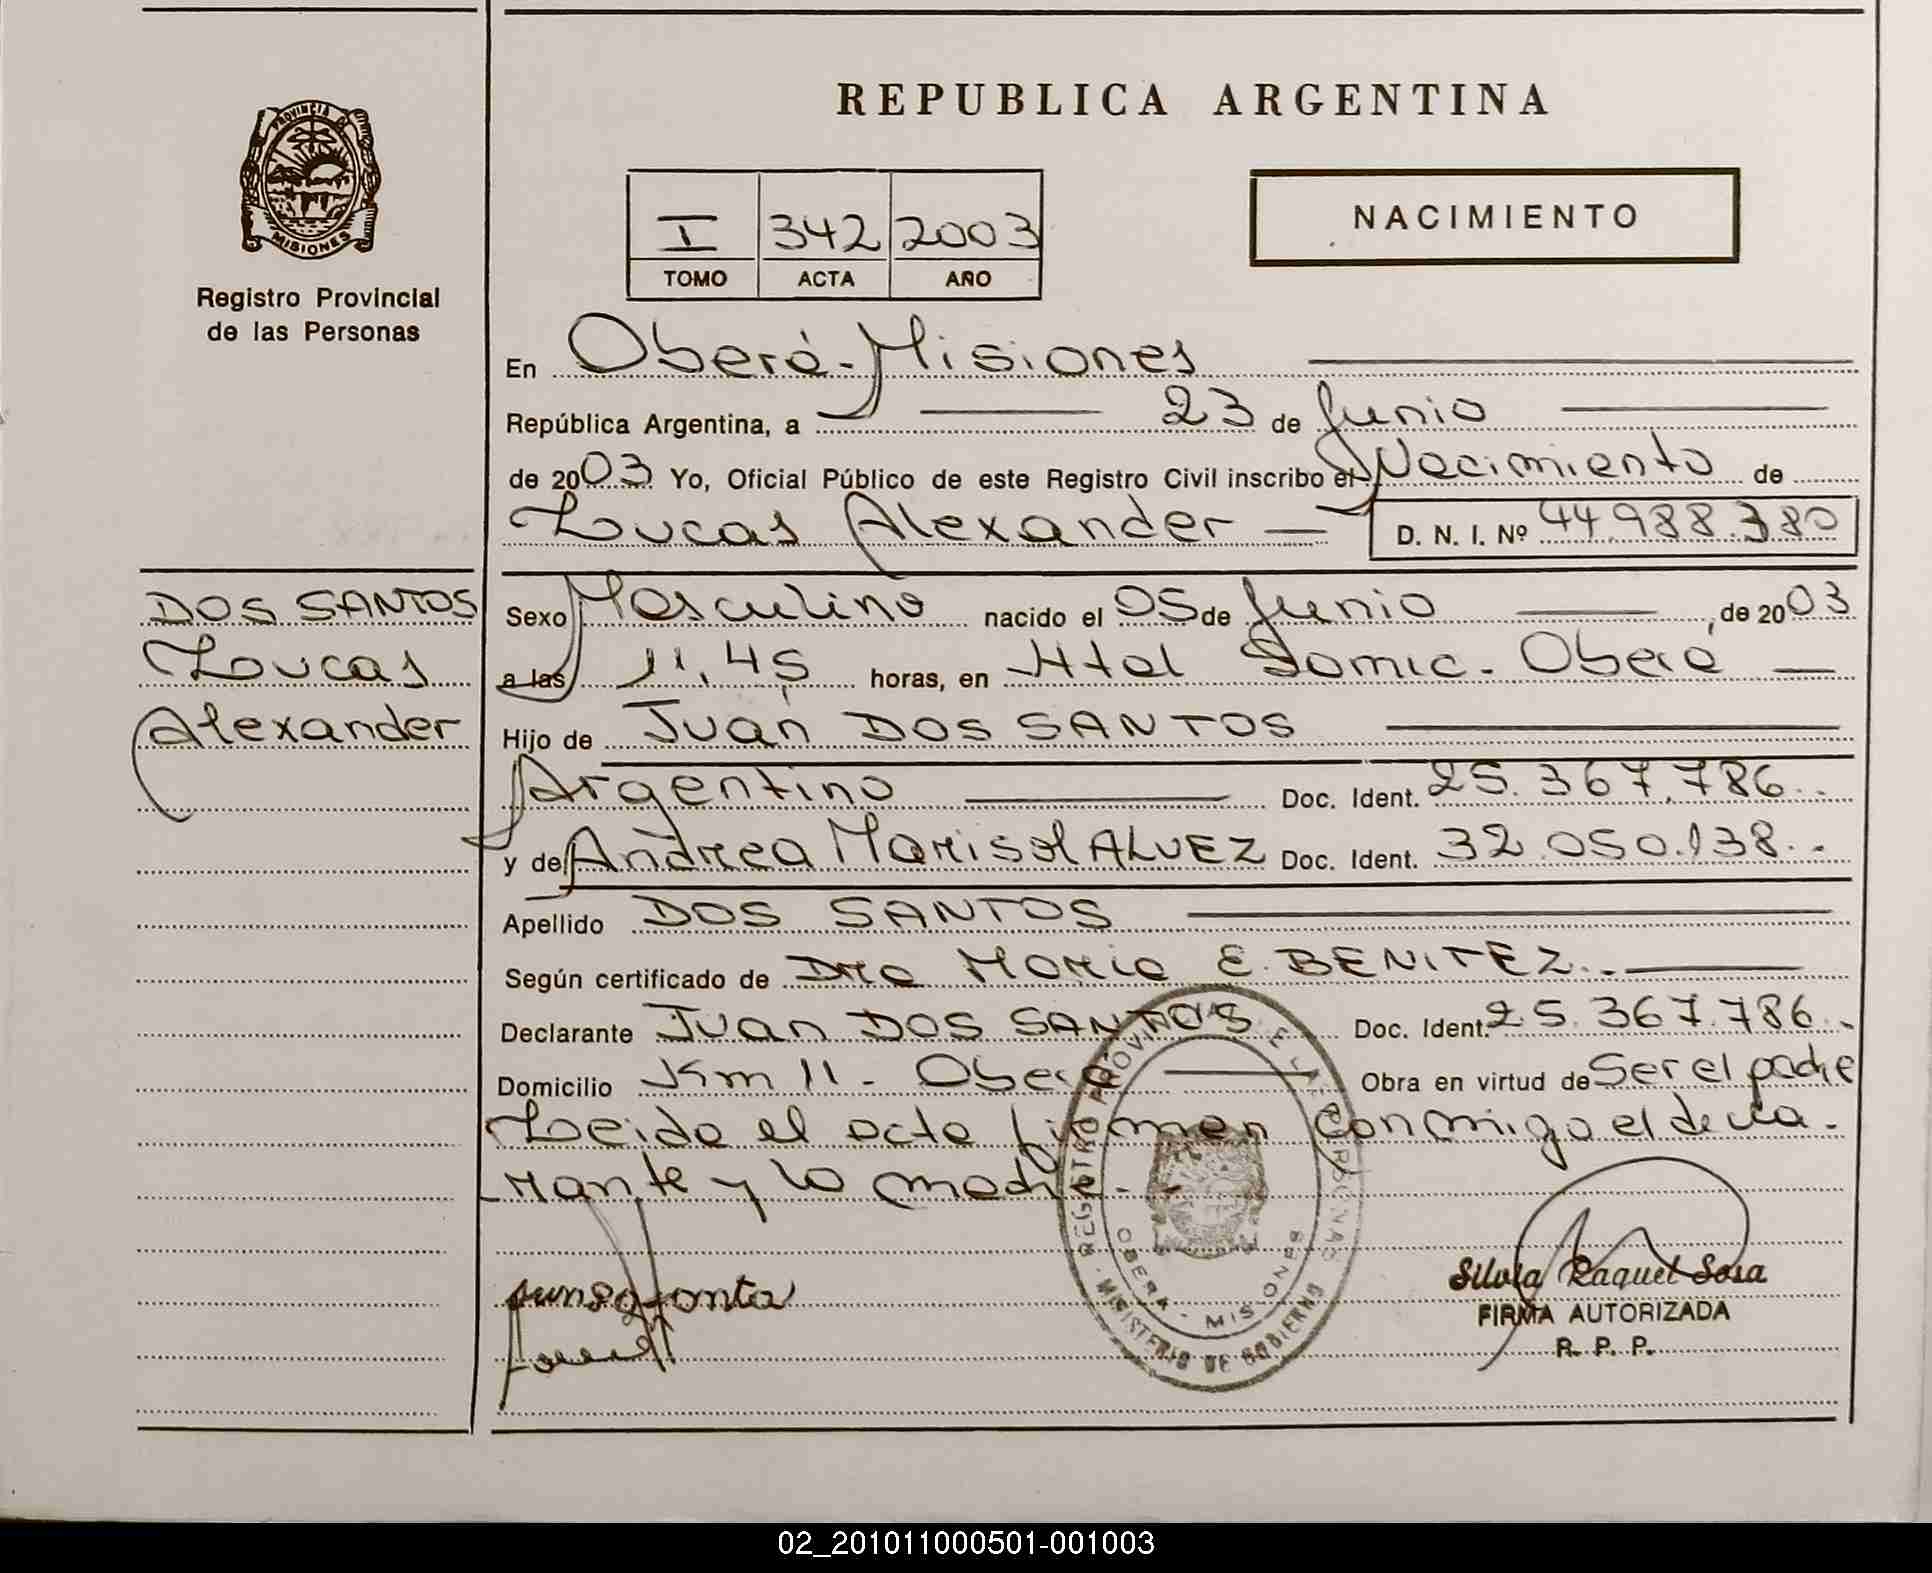 REPUBLICA ARGENTINA
PROVINCIA DE
MISIONES
Registro Provincial
de las Personas
I 342 2003
TOMO ACTA AÑO
NACIMIENTO
En Oberá-Misiones
República Argentina, a 23 de Junio
de 2003 Yo, Oficial Público de este Registro Civil inscribo el Nacimiento de
Lucas Alexander D. N. I. Nº 44.988.380
DOS SANTOS
Lucas
Alexander
Sexo Masculino nacido el 05 de Junio, de 2003
a las 11,45 horas, en Htal Samic. Oberá
Hijo de Juan DOS SANTOS
Argentino Doc. Ident. 25.367.786..
y de Andrea Marisol ALVEZ Doc. Ident. 32.050.138..
Apellido DOS SANTOS
Según certificado de Dra Maria E. BENITEZ..
Declarante Juan DOS SANTOS Doc. Ident. 25.367.786..
Domicilio Km 11 - Oberá Obra en virtud de Ser el padre
Leida el acta firman conmigo el decla-
rante y la madre.-
REGISTRO PROVINCIAL DE LAS PERSONAS
OBERA - MISIONES
MINISTERIO DE GOBIERNO
Silvia Raquel Sosa
FIRMA AUTORIZADA
R. P. P.
02_201011000501-001003